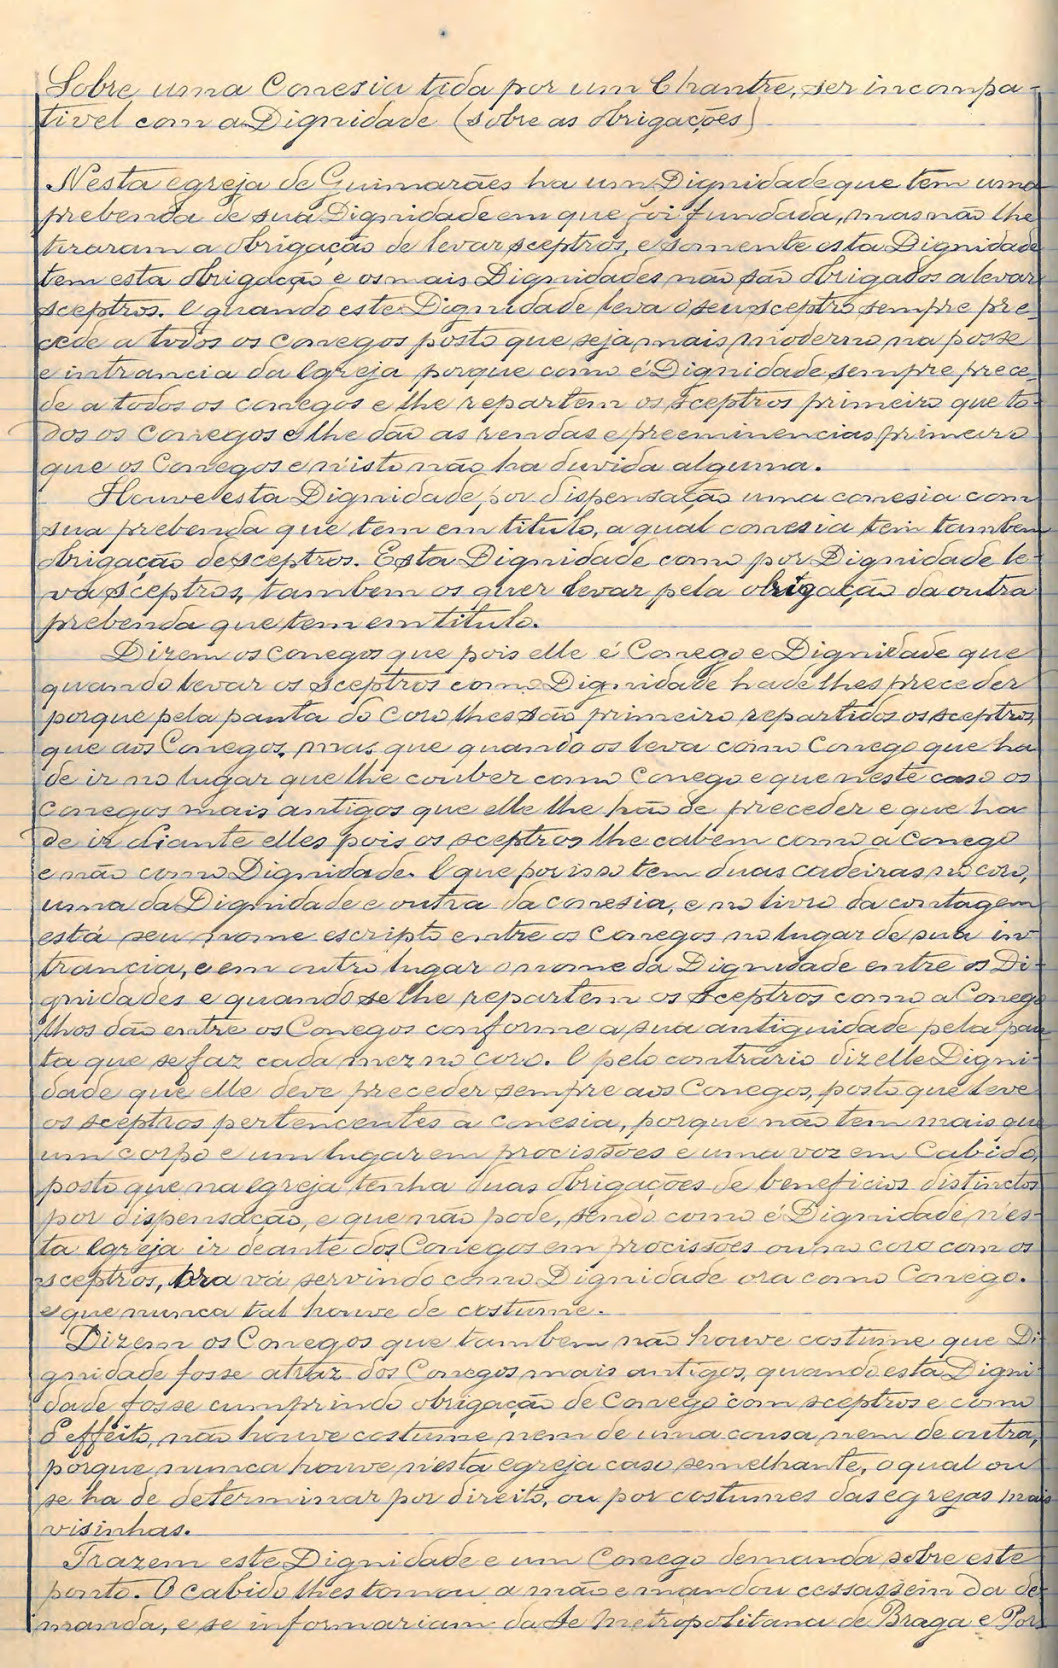 Sobre uma Conesia tida por um Chantre, ser incompa-
tivel com a Dignidade (sobre as obrigações)
Nesta egreja de Guimarães ha um Dignidade que tem uma
prebenda de sua Dignidade em que foi fundada, mas não lhe
tiraram a obrigação de levar sceptros, e somente esta Dignidade
tem esta obrigação e os mais Dignidades não são obrigados a levar
sceptros. E quando este Dignidade leva o seu sceptro sempre pre-
cede a todos os conegos posto que seja mais moderno na posse
e intrancia da Egreja porque como é Dignidade sempre prece-
de a todos os conegos e lhe repartem os sceptros primeiro que to-
dos os Conegos e lhe dão as rendas e preeminencias primeiro
que os Conegos e n'isto não ha duvida alguma.
Houve esta Dignidade, por dispensação uma conesia com
sua prebenda que tem em titulo, a qual conesia tem tambem
obrigação de sceptros. Esta Dignidade como por Dignidade le-
va sceptros, tambem os quer levar pela obrigação da outra
prebenda que tem em titulo.
Dizem os conegos que pois elle é Conego e Dignidade que
quando levar os sceptros como Dignidade hade lhes preceder
porque pela pauta do coro lhes são primeiro repartidos os sceptros,
que aos Conegos, mas que quando os leva como Conego que ha
de ir no lugar que lhe couber como conego e que neste caso os
Conegos mais antigos que elle lhe hão de preceder e que ha
de ir diante elles pois os sceptros lhe cabem como a conego
e não como Dignidade. E que por isso tem duas cadeiras no coro,
uma da Dignidade e outra da conesia, e no livro da contagem
está seu nome escripto entre os conegos no lugar de sua in-
trancia, e em outro lugar o nome da Dignidade entre os Di-
gnidades e quando se lhe repartem os sceptros como a Conego
lhos dão entre os Conegos conforme a sua antiguidade pela pau-
ta que se faz cada mez no coro. E pelo contrario diz elle Digni-
dade que elle deve preceder sempre aos Conegos, posto que leve
os sceptros pertencentes a conesia, porque não tem mais que
um corpo e um lugar em procissões e uma voz em Cabido,
posto que na egreja tenha duas obrigações de beneficios distinctos
por dispensação, e que não pode, sendo como é Dignidade n'es-
ta Egreja ir deante dos Conegos em procissões ou no coro com os
sceptros, ora vá servindo como Dignidade ora como Conego.
e que nunca tal houve de costume.
Dizem os Conegos que tambem não houve costume que Di-
gnidade fosse atraz dos Conegos mais antigos, quando esta Digni-
dade fosse cumprindo obrigação de Conego com sceptros e como
d'effeito, não houve costume nem de uma cousa nem de outra,
porque nunca houve n'esta egreja caso semelhante, o qual ou
se ha de determinar por direito, ou por costumes das egrejas mais
visinhas.
Trazem este Dignidade e um Conego demanda sobre este
ponto. O cabido lhes tomou a mão e mandou cessassem da de-
manda, e se informariam da Se Metropolitana de Braga e Por-